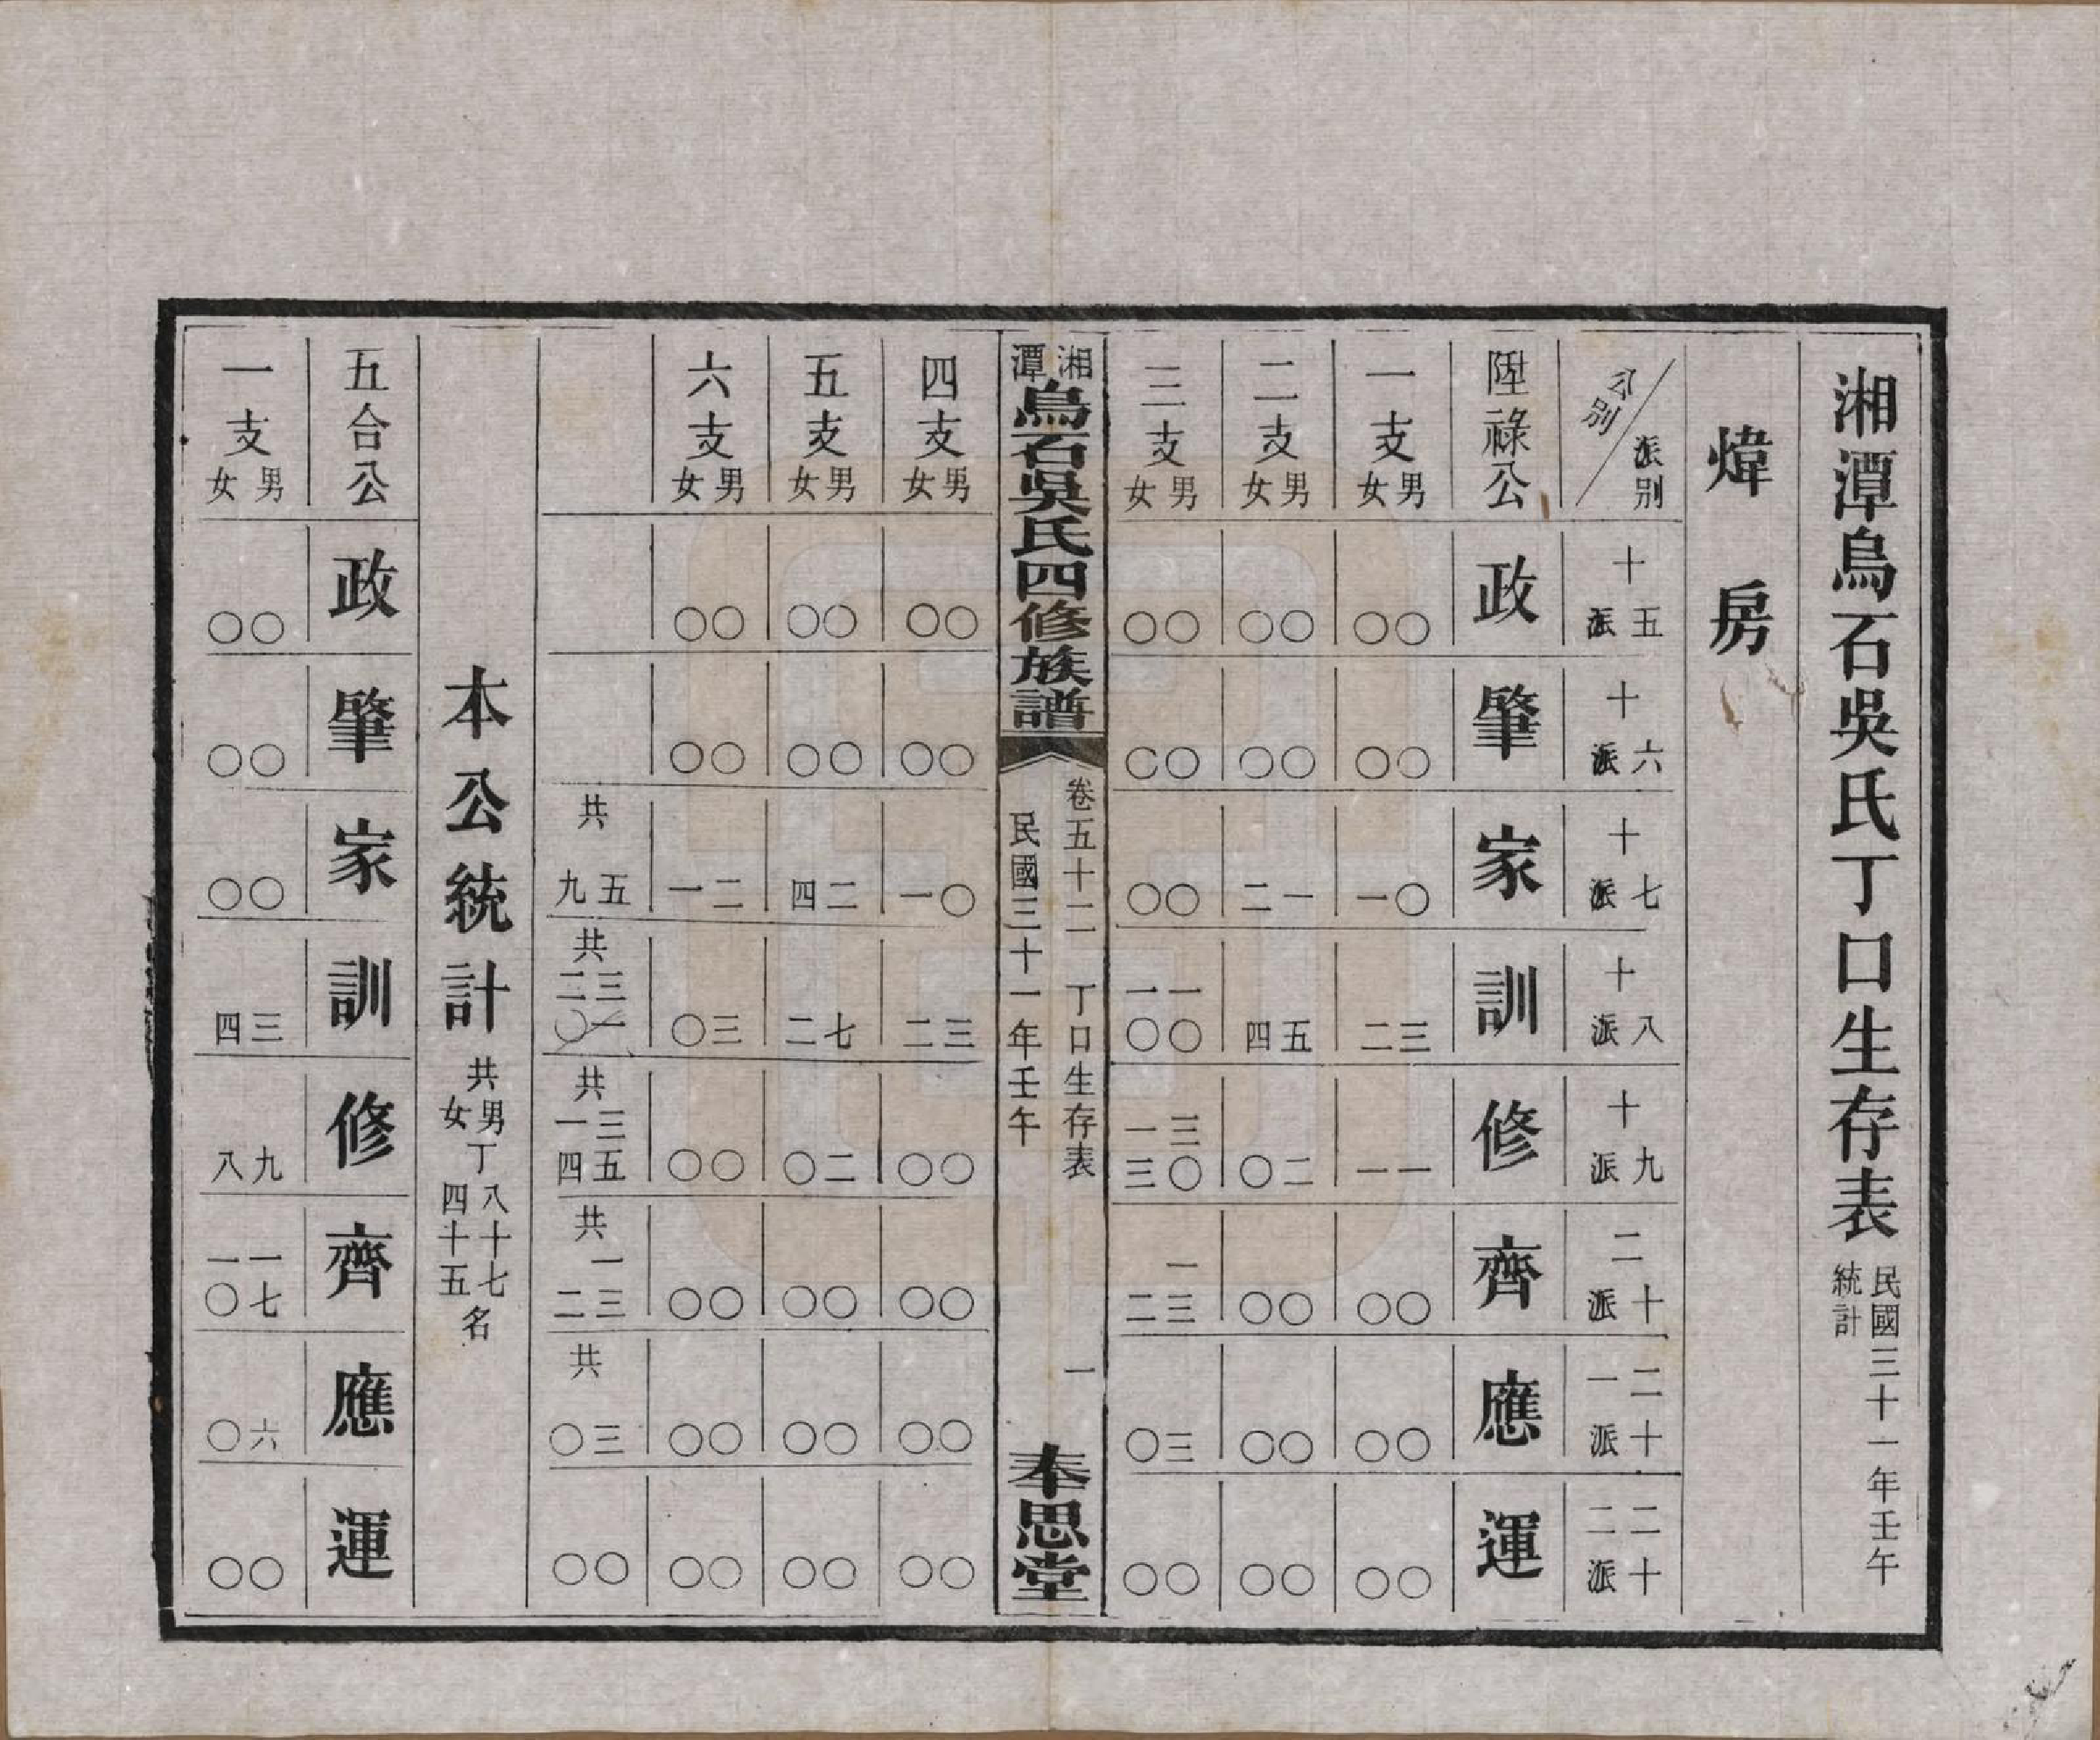 湘潭烏石吳氏丁口生存表 民國三十一年壬午統計
煒房
公別／派別 十五派 十六派 十七派 十八派 十九派 二十派 二十一派 二十二派
陞祿公 政 肇 家 訓 修 齊 應 運
一支男女 〇〇 〇〇 〇一 三二 一一 〇〇 〇〇 〇〇
二支男女 〇〇 〇〇 一二 五四 二〇 〇〇 〇〇 〇〇
三支男女 〇〇 〇〇 〇〇 一〇一〇 三〇一三 一三二 三〇 〇〇
湘潭烏石吳氏四修族譜 卷五十二 丁口生存表 民國三十一年壬午 一 奉思堂
四支男女 〇〇 〇〇 〇一 三二 〇〇 〇〇 〇〇 〇〇
五支男女 〇〇 〇〇 二四 七二 二〇 〇〇 〇〇 〇〇
六支男女 〇〇 〇〇 二一 三〇 〇〇 〇〇 〇〇 〇〇
共五九 共三一二〇 共三五一四 共一三二 共三〇 〇〇
本公統計 共男丁八十七女四十五名
五合公 政 肇 家 訓 修 齊 應 運
一支男女 〇〇 〇〇 〇〇 三四 九八 一七一〇 六〇 〇〇